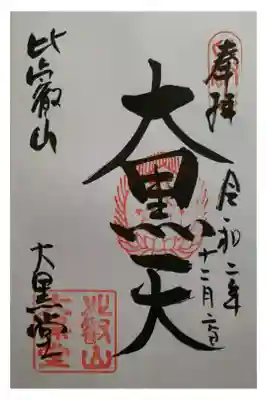 奉拝
令和二年
十二月二日
大黒天
比叡山
大黒堂
比叡山
大黒堂